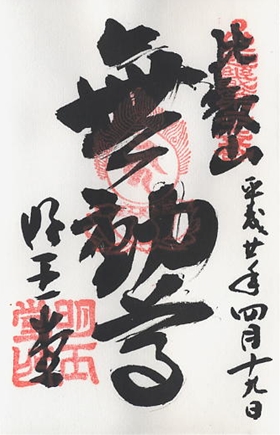 比叡山
平成廿年四月十九日
無動尊
明王堂
明王堂印